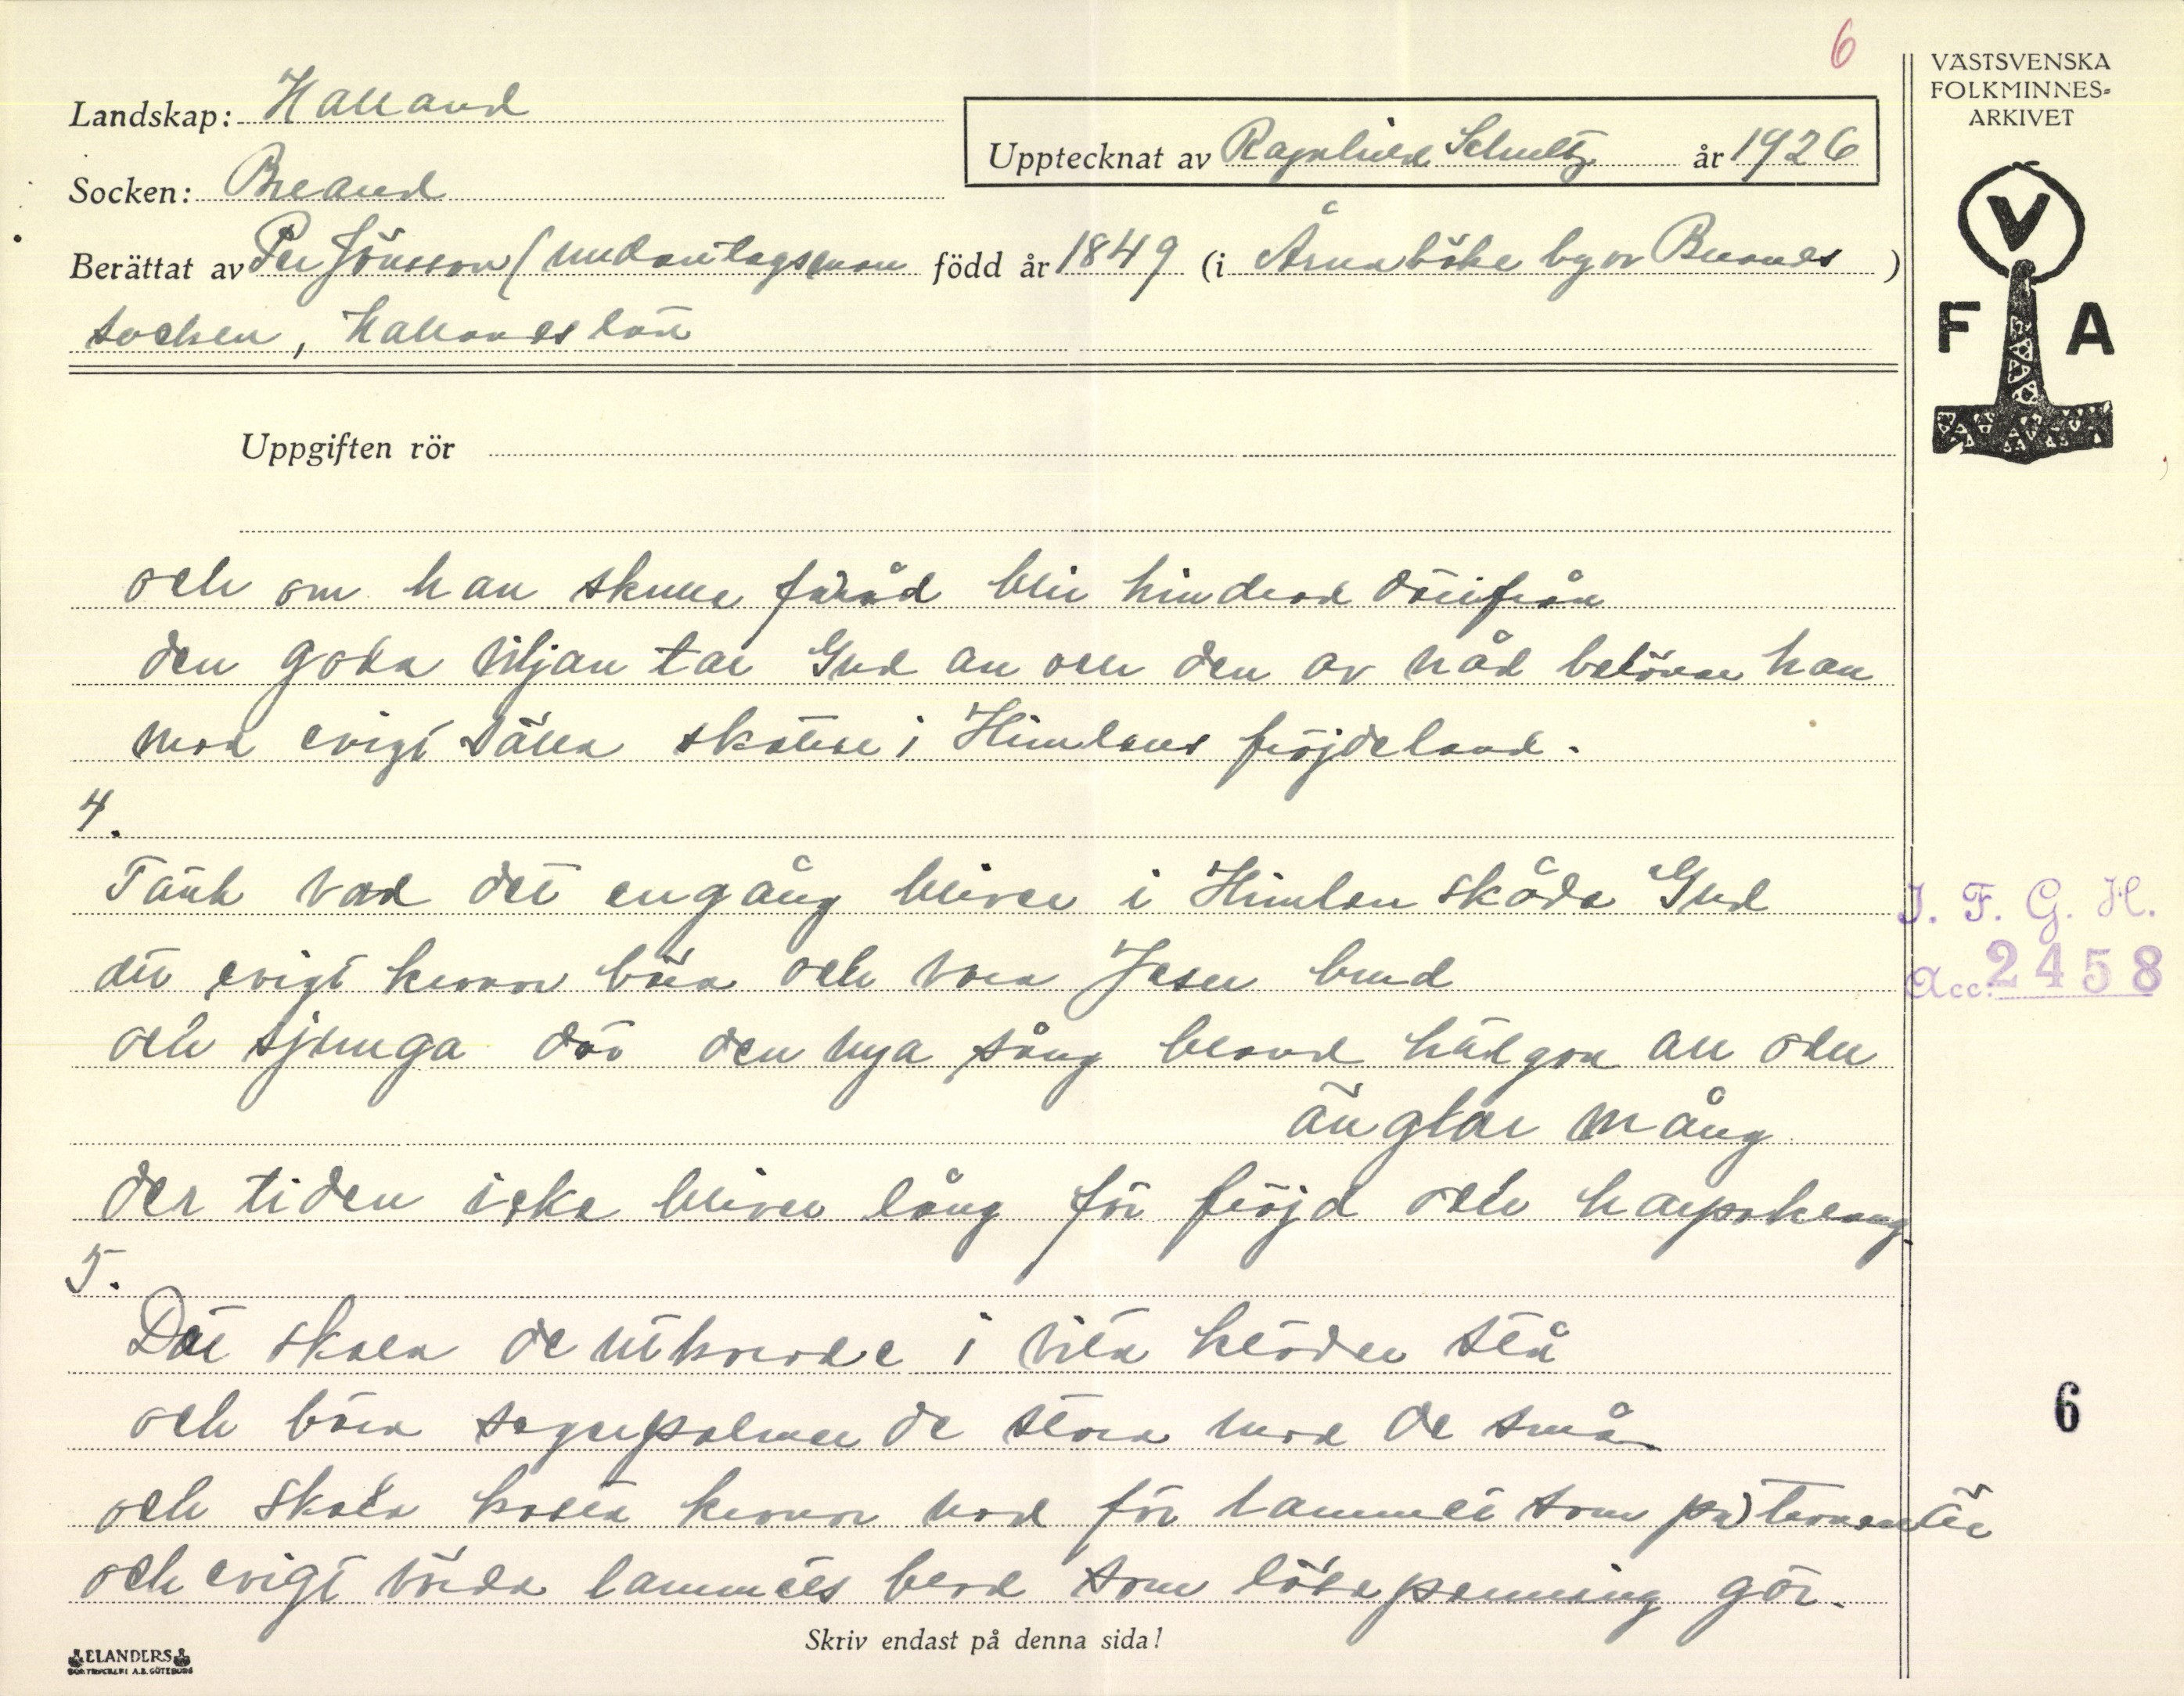 6
VÄSTSVENSKA
FOLKMINNES=
ARKIVET
Landskap: Halland
Upptecknat av Ragnhild Schultz år 1926
Socken: Breared
Berättat av Per Jönsson (undantagsman född år 1849 (i Årnaböke by av Breareds )
socken, Hallands län
V
F A
Uppgiften rör
och om han skulle bli hindrad därifrån
den goda viljan tar Gud an och den av nåd belönar han
med evigt sälla skatter i Himlens fröjdeland.
4.
Tänk vad det engång bliver i Himlen skåda Gud
att evigt kronor bära och vara Jesu brud
och sjunga där den nya sång bland hälgon all och
änglar mång
der tiden icke bliver lång för fröjd och harpoklang.
5.
Där skola de utkorade i vita kläder stå
och bära segerpalmer de stora med de små
och skola kasta kronor ned för lammet som på tronen är
och evigt värde lammets blod som lösepenning gör.
I. F. G. H.
Acc. 2458
6
Skriv endast på denna sida!
ELANDERS
BOKTRYCKERI A.B. GÖTEBORG